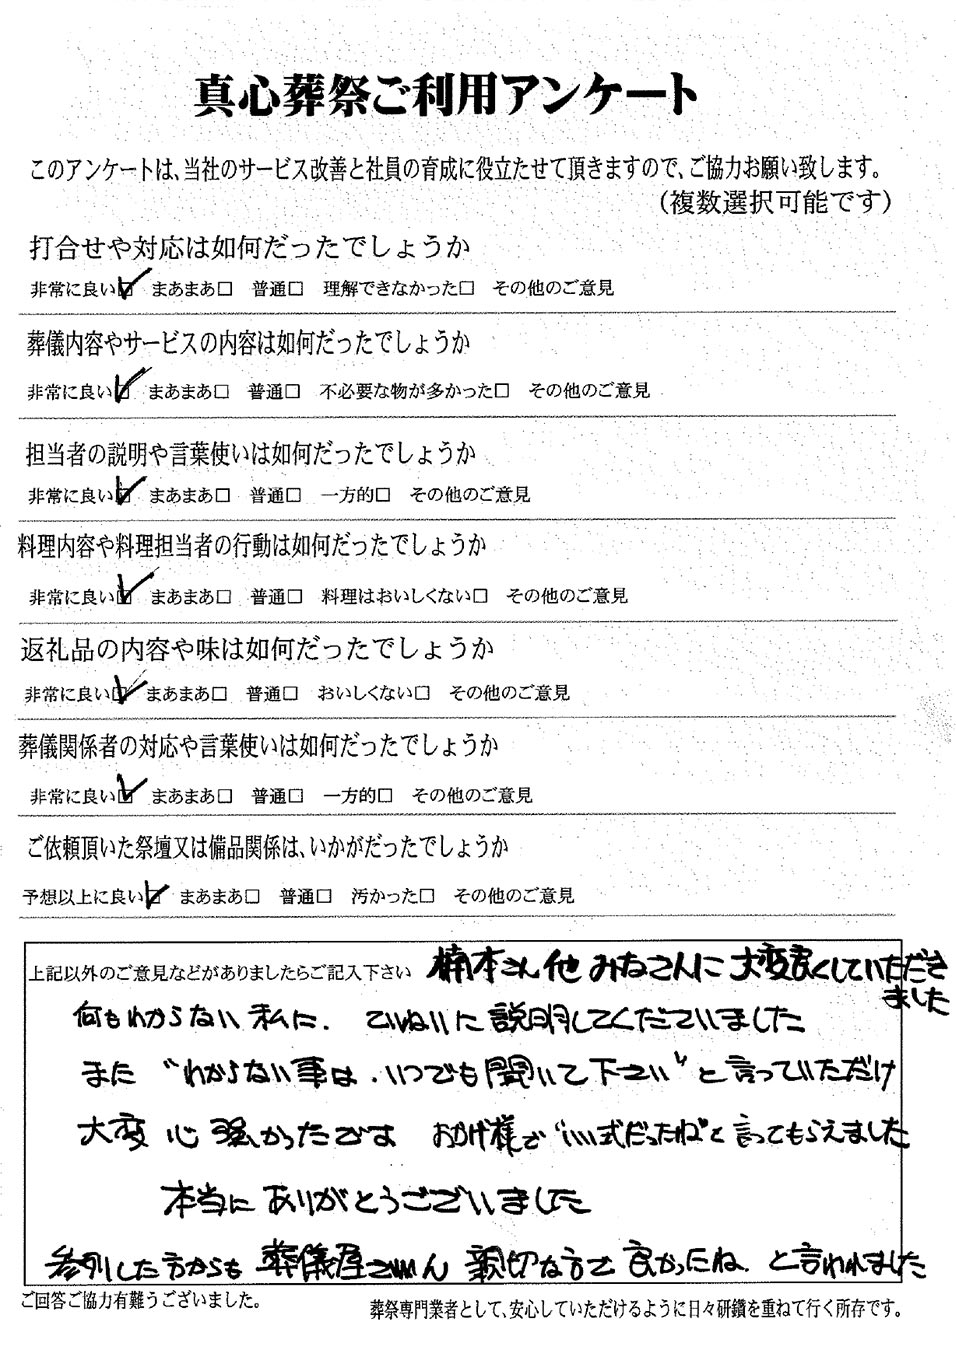 真心葬祭ご利用アンケート
このアンケートは、当社のサービス改善と社員の育成に役立たせて頂きますので、ご協力お願い致します。
（複数選択可能です）
打合せや対応は如何だったでしょうか
非常に良い☑ まあまあ□ 普通□ 理解できなかった□ その他のご意見
葬儀内容やサービスの内容は如何だったでしょうか
非常に良い☑ まあまあ□ 普通□ 不必要な物が多かった□ その他のご意見
担当者の説明や言葉使いは如何だったでしょうか
非常に良い☑ まあまあ□ 普通□ 一方的□ その他のご意見
料理内容や料理担当者の行動は如何だったでしょうか
非常に良い☑ まあまあ□ 普通□ 料理はおいしくない□ その他のご意見
返礼品の内容や味は如何だったでしょうか
非常に良い☑ まあまあ□ 普通□ おいしくない□ その他のご意見
葬儀関係者の対応や言葉使いは如何だったでしょうか
非常に良い☑ まあまあ□ 普通□ 一方的□ その他のご意見
ご依頼頂いた祭壇又は備品関係は、いかがだったでしょうか
予想以上に良い☑ まあまあ□ 普通□ 汚かった□ その他のご意見
上記以外のご意見などがありましたらご記入下さい 楠本さん他みなさんに大変良くしていただき
ました
何もわからない私に、ていねいに説明してくださいました
また“わからない事は、いつでも聞いて下さい”と言っていただけ
大変心強かったです おかげ様で“いい式だったね”と言ってもらえました
本当にありがとうございました
参列した方からも葬儀屋さん親切な方で良かったね、と言われました
ご回答ご協力有難うございました。
葬祭専門業者として、安心していただけるように日々研鑽を重ねて行く所存です。